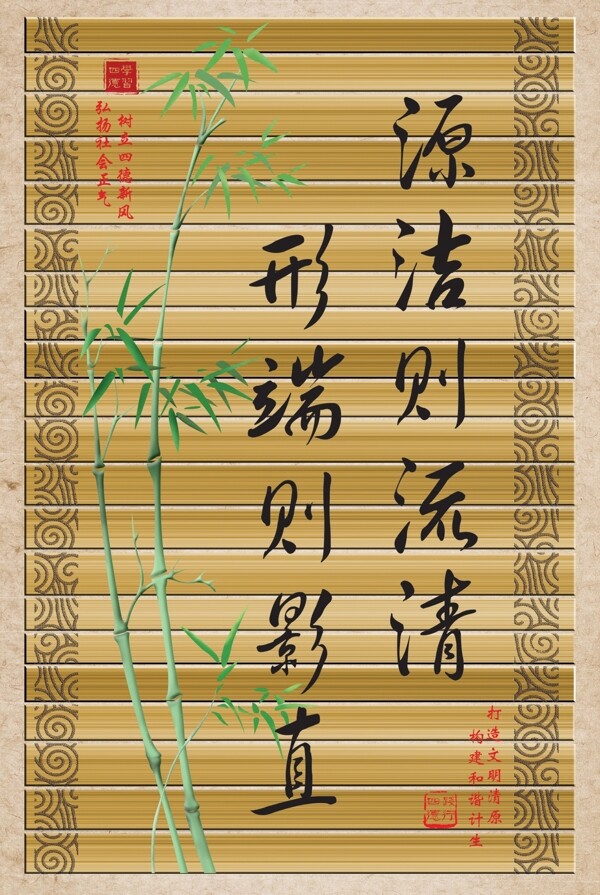 源洁则流清
形端则影直
學習四德
树立四德新风
弘扬社会正气
打造文明清原
构建和谐计生
践行四德